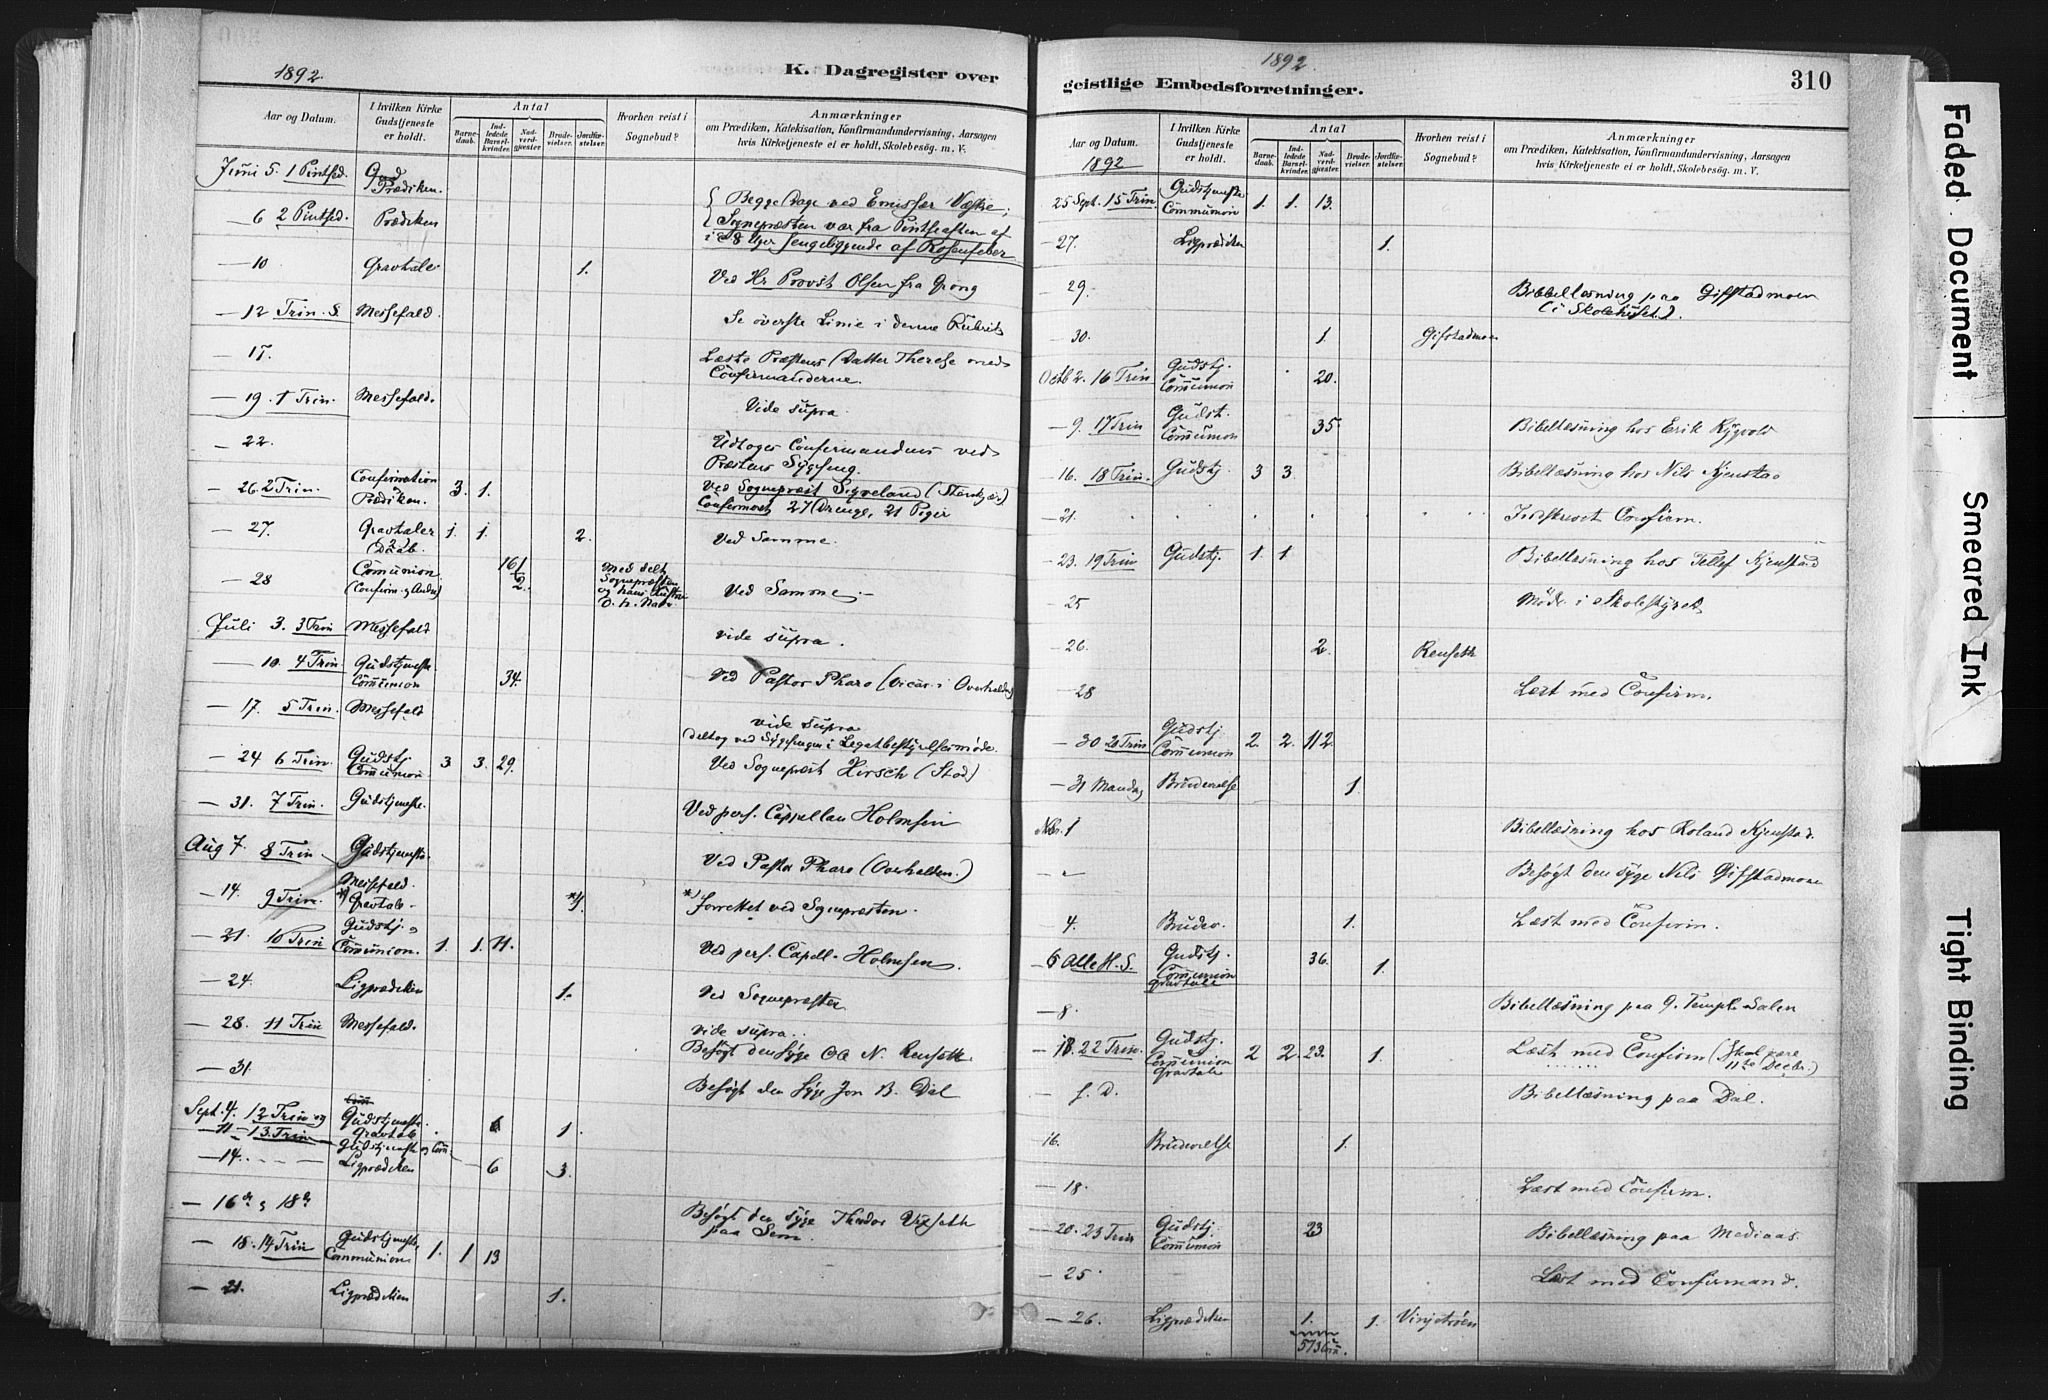 1892
K. Dagregister over
Aar og Datum.
I hvilken Kirke Gudstjeneste er holdt.
Antal
Barnedaab.
Indledede Barselkvinder.
Nadverdgjæster.
Brudevielser.
Jordfæstelser.
Hvorhen reist i Sognebud?
Anmærkninger
om Prædiken, Katekisation, Konfirmandundervisning, Aarsagen
hvis Kirketjeneste ei er holdt, Skolebesøg. m. V.
Juni 5. 1 Pintsed. Prædiken.
— 6 2 Pintsed. Prædiken Begge Dage ved Emissær Væstre;
Sognepræsten var fra Pintseaften af
i 8 Uger sengeliggende af Rosenfeber
— 10 Gravtale 1. Ved Hr Provst Olsen fra Grong
— 12 Trin. S. Messefald. Se øverste Linie i denne Rubrik
— 17. Læste Præstens Datter Therese med
Confirmanderne.
— 19. 1 Trin. Messefald. Vide supra.
— 22. Udtoges Confermandens ved
Præstens Sygeseng.
— 26. 2 Trin. Confirmation Prædiken. 3. 1. Ved Sognepræst Sigveland (Stenkjær)
Confirmeret 27 Drenge, 21 Piger
— 27. Gravtaler (2) Daab. 1. 1. 2. Ved Samme.
— 28 Communion (Confirm. og Andre) 161/2. Med delt Sognepræsten og hans Hustru D. h. Nadv. Ved Samme.—
Juli 3. 3 Trin Messefald vide supra.
— 10. 4 Trin. Gudstjeneste Communion 34. Ved Pastor Pharo (vicar. i Overhalden)
— 17. 5 Trin. Messefald vide supra
deltog ved Sygesengen i Legatbestyrelsesmøde.
— 24 6 Trin. Gudstj. Communion 3 3. 29. Ved Sognepræst Hirsch (Stod)
— 31. 7 Trin. Gudstjeneste. Ved pers. Cappellan Holmsen
Aug 7. 8 Trin. Gudstjeneste. Ved Pastor Pharo (Overhalden.)
— 14. 9 Trin. Messefald. *) Gravtale. *) 1. *) Forrettet ved Sognepræsten.
— 21. 10 Trin Gudstj. Communion. 1. 1. 11. Ved pers. Capell. Holmsen.
— 24. Ligprædiken 1. Ved Sognepræsten
— 28. 11 Trin Messefald. vide supra.
Besøgt den syge Ole N. Renseth.
— 31 Besøgt den syge Jon B. Dal
Sept. 4. 12 Trin og Gudstjeneste. Gravtale 1.
— 11 — 13 Trin Gudstjeneste og Com.
— 14. — Ligprædiken 6 3.
— 16de & 18de Besøgt den syge Theodor Vixseth
paa Sem.
— 18. 14 Trin Gudstjeneste, Communion 1. 1 13
— 21. Ligprædiken 1.
1892.
geistlige Embedsforretninger.
310
Aar og Datum.
1892
I hvilken Kirke Gudstjeneste er holdt.
Antal
Barnedaab.
Indledede Barselkvinder.
Nadverdgjæster.
Brudevielser.
Jordfæstelser.
Hvorhen reist i Sognebud?
Anmærkninger
om Prædiken, Katekisation, Konfirmandundervisning, Aarsagen
hvis Kirketjeneste ei er holdt, Skolebesøg. m. V.
25 Sept. 15 Trin. Gudstjeneste Communion 1. 1. 13.
— 27. Ligprædiken 1.
— 29. Bibellæsning paa Gifstadmoen
(i Skolehuset).
— 30. 1. Gifstadmoen
Octb 2. 16 Trin Gudstj. Communion 20.
— 9. 17 Trin Gudst. Communion 35. Bibellæsning hos Erik Rygvold
— 16. 18 Trin. Gudstj. 3 3. Bibellæsning hos Nils Kjenstad
— 21. Indskrevet Confirm.
— 23. 19 Trin Gudstj. 1. 1. Bibellæsning hos Tellef Kjenstad
— 25 Møde i Skolestyret
— 26. 2. Renseth
— 28 Læst med Confirm.
— 30 20 Trin Gudstj. Communion 2. 2. 112.
— 31 Mandag Brudevielse 1.
Nbr. 1 Bibellæsning hos Roland Kjenstad.
— „ Besøgt den syge Nels Gifstadmoen
— 4. Brudev. 1. Læst med Confirm.
— 6 Alle H. S. Gudstj. Communion Gravtale 36. 1.
— 8. Bibellæsning paa G. Templ. Salen
— 13. 22 Trin. Gudstj. Communion Gravtale 2 2. 23. 1. Læst med Confirm (Skal være 11te Decbr.)
— s. D. Bibellæsning paa Dal.
16. Brudevielse 1.
— 18. Læst med Confirm.
— 20. 23 Trin Gudstj. Communion 23 Bibellæsning paa Mediaas.
— 25 Læst med Confirmand.
— 26. Ligprædiken 1. 1. Vinjetrøen
573
Faded Document
Smeared Ink
Tight Binding